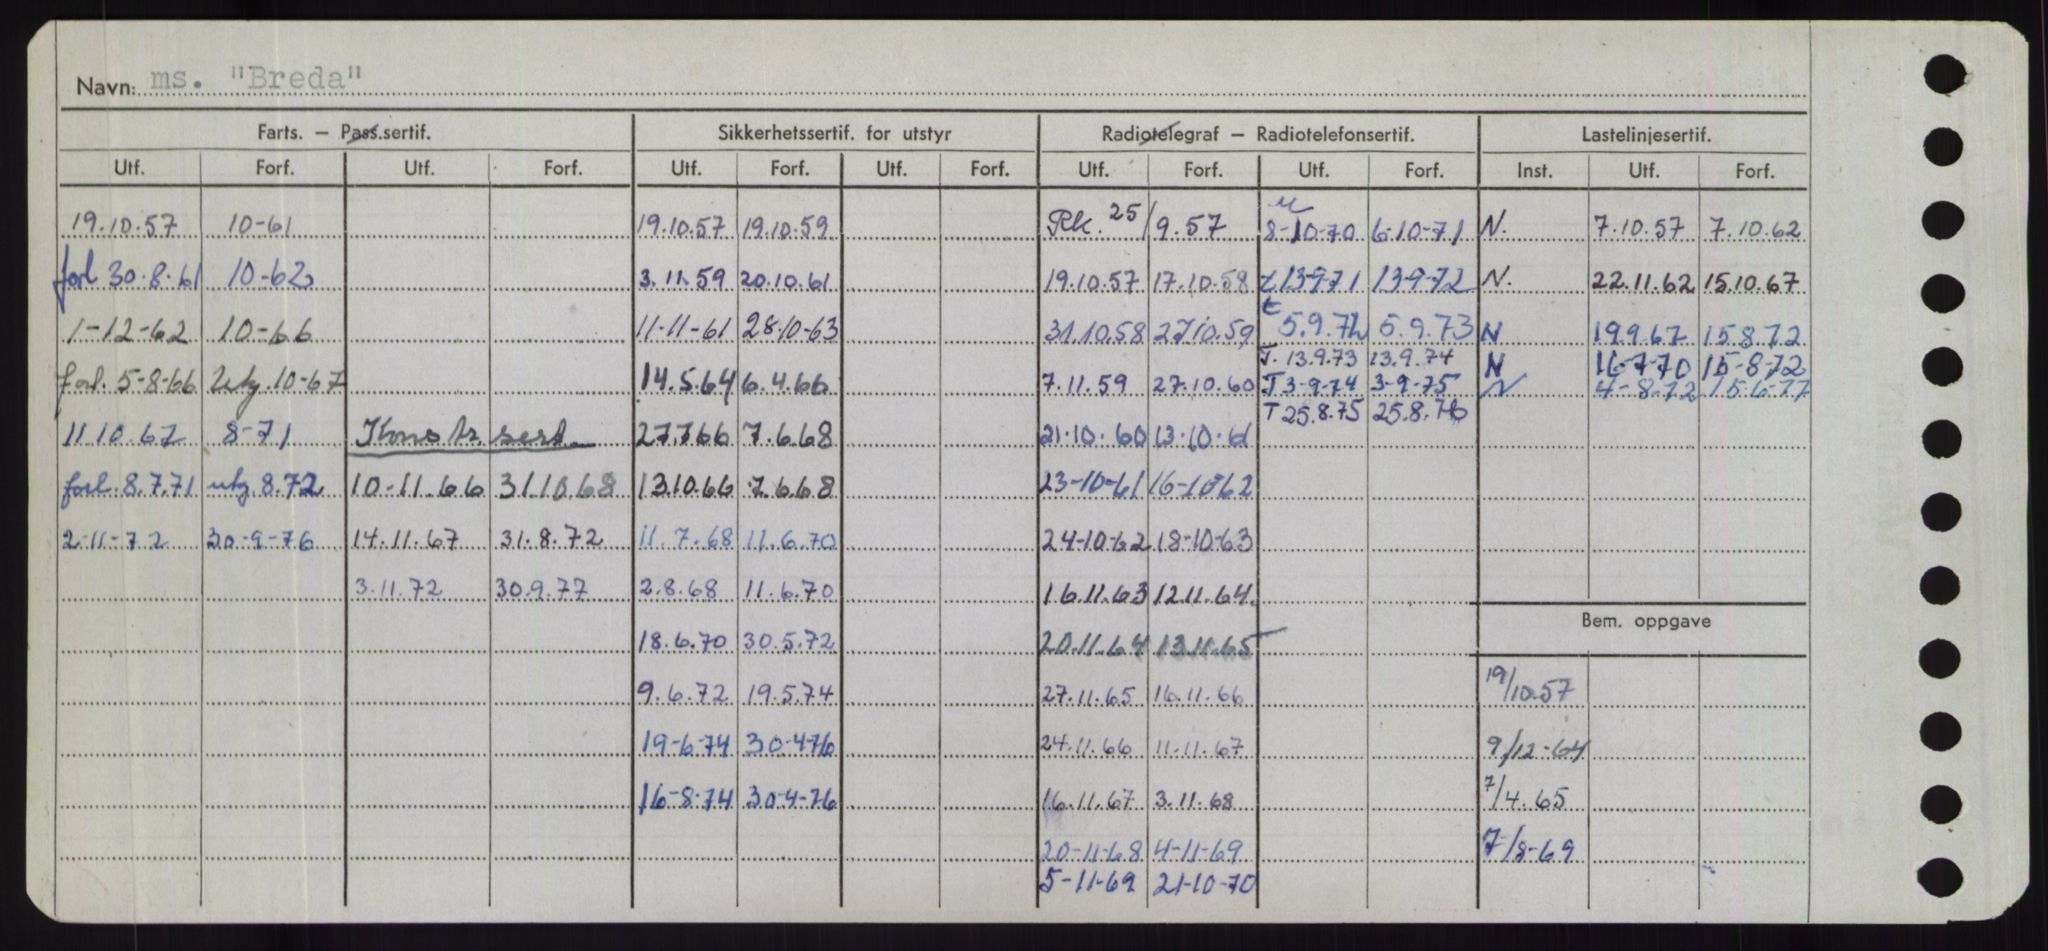 Navn: ms. "Breda"
Farts. – Pass.sertif. Sikkerhetssertif. for utstyr Radiotelegraf – Radiotelefonsertif. Lastelinjesertif.
Utf. Forf. Utf. Forf. Utf. Forf. Utf. Forf. Utf. Forf. Utf. Forf. Inst. Utf. Forf.
19.10.57 10-61 19.10.57 19.10.59 Rk. 25/9.57 8-10-70 6-10-71 N. 7.10.57 7.10.62
forl 30.8.61 10-62 3.11.59 20.10.61 19.10.57 17.10.58 t 13-9-71 13-9-72 N. 22.11.62 15.10.67
1-12-62 10-66 11-11-61 28-10-63 31.10.58 27.10.59 t 5.9.72 5.9.73 N 19.9.67 15.8.72
T. 13.9.73 13.9.74 N 16-7-70 15-8-72
forl. 5-8-66 utg. 10-67 14.5.64 6.4.66 7.11.59 27.10.60 T 3-9-74 3-9-75 N 4-8-72 15-6-77
T 25.8.75 25.8.76
11.10.67 8-71 Konstr. sert. 27.7.66 7.6.68 21-10-60 13-10-61
forl. 8.7.71 utg 8.72 10-11.66 31.10.68 13.10.66 7.6.68 23-10-61 16-10-62
2-11-72 30-9-76 14.11.67 31.8.72 11.7.68 11.6.70 24-10-62 18-10-63
3.11.72 30.9.77 2.8.68 11.6.70 16.11.63 12.11.64.
18.6.70 30.5.72 20.11.64 13.11.65
Bem. oppgave
9.6.72 19.5.74 27.11.65 16.11.66 19/10.57
19-6-74 30-4-76 24.11.66 11.11.67 9/12-64
16-8-74 30-4-76 16.11.67 3.11.68 7/4.65
20-11-68 4-11-69 7/8-69
5-11-69 21-10-70